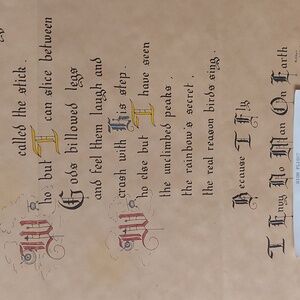 called the stick.
Who but I can slice between
Gods billowed legs
and feel them laugh and
crash with His step.
Who else but I have seen
the unclimbed peaks.
the rainbow's secret.
the real reason birds sing.
Because I Fly
I Envy No Man On Earth